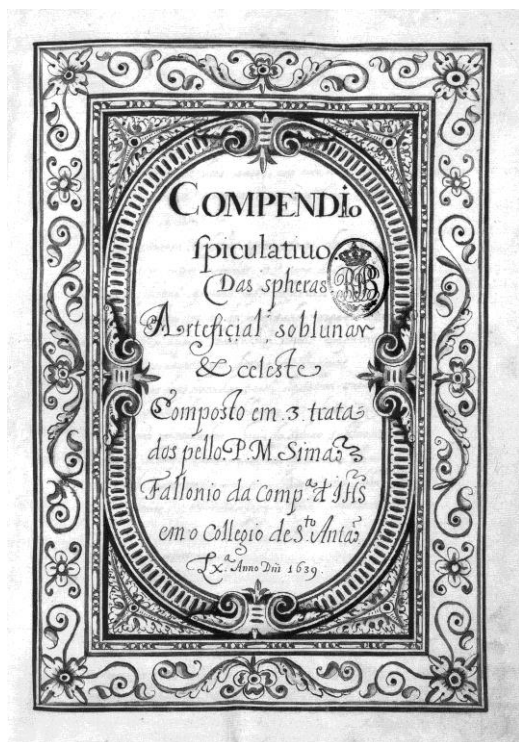 COMPENDIo
spiculatiuo.
Das spheras.
Arteficial, soblunar
& celeste
Composto em 3. trata
dos pello P. M. Simaõ
Fallonio da Comp.ª d IHS
em o Collegio de S.to Antaõ
Lx.ª Anno Dñi 1639.